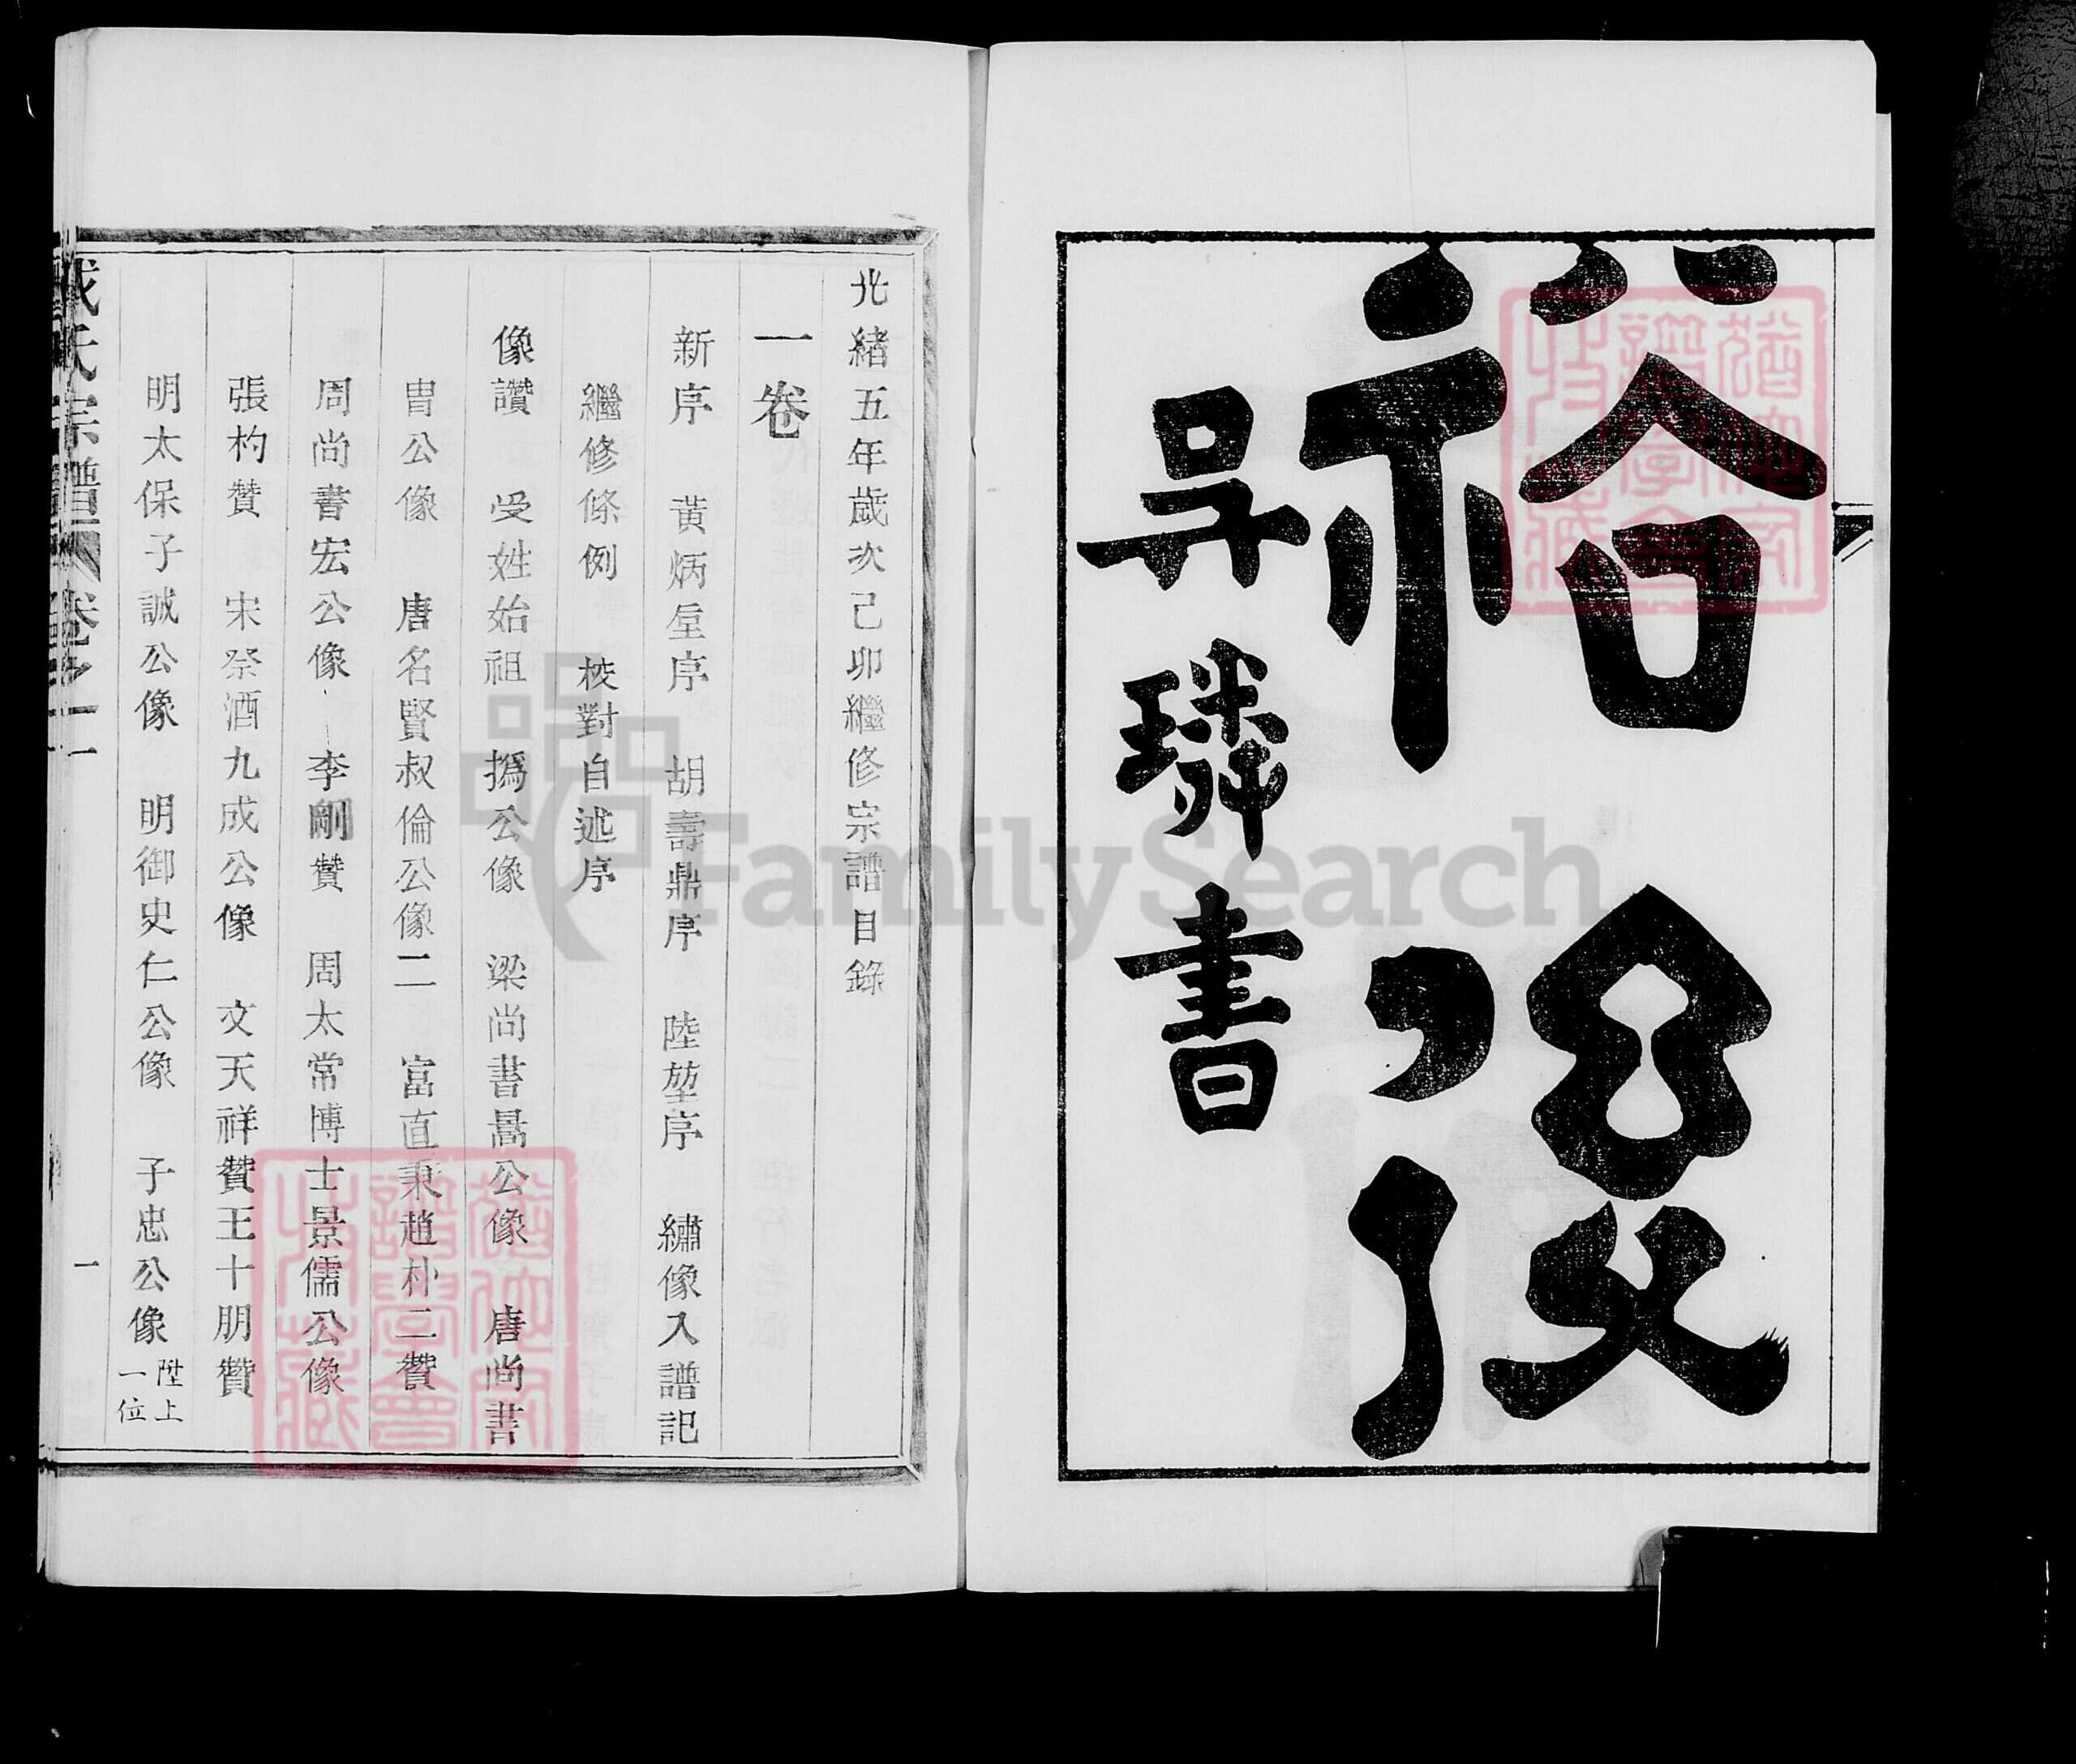 裕後
吴璘書
光緒五年歲次己卯繼修宗譜目錄
一卷
新序 黃炳垕序 胡壽鼎序 陸堃序 繡像入譜記
繼修條例 校對自述序
像讚 受姓始祖撝公像 梁尚書暠公像 唐尚書
胄公像 唐名賢叔倫公像二 富直秉趙朴二贊
周尚書宏公像 李剛贊 周太常博士景儒公像
張杓贊 宋祭酒九成公像 文天祥贊王十朋贊
明太保子誠公像 明御史仁公像 子忠公像 陞上一位
氏宗譜 卷之一 一
FamilySearch